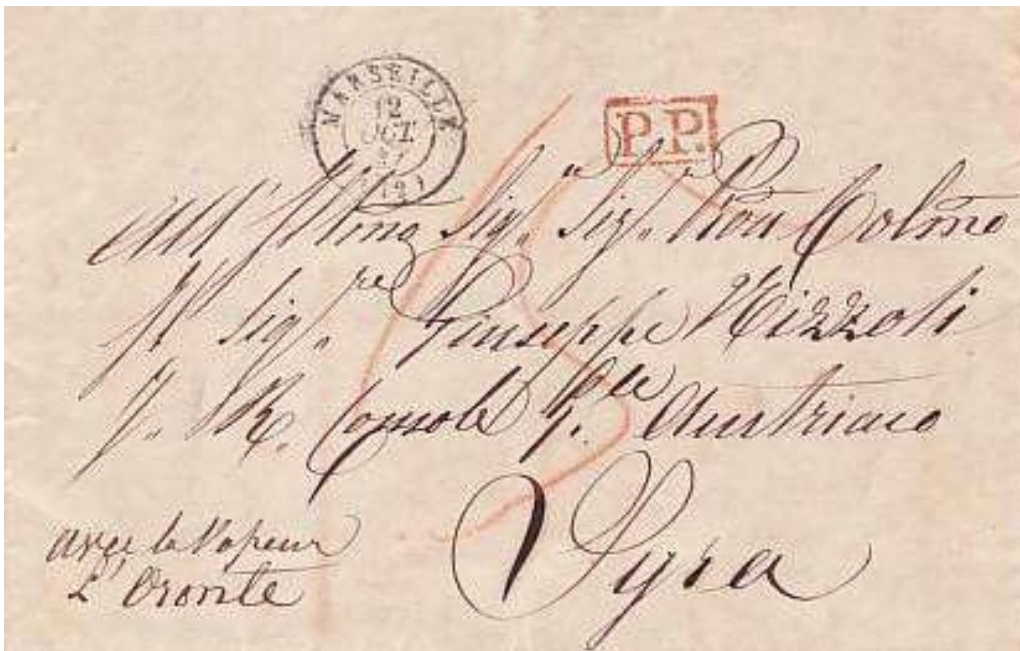 MARSEILLE
12
OCT.
(12)
P.P.
All' Illmo Sig.r Sig.r Pron Colmo
Il Sig.re Giuseppe Nizzoli
I. R. Console Gle Austriaco
Syra
avec le Vapeur
L'Oronte